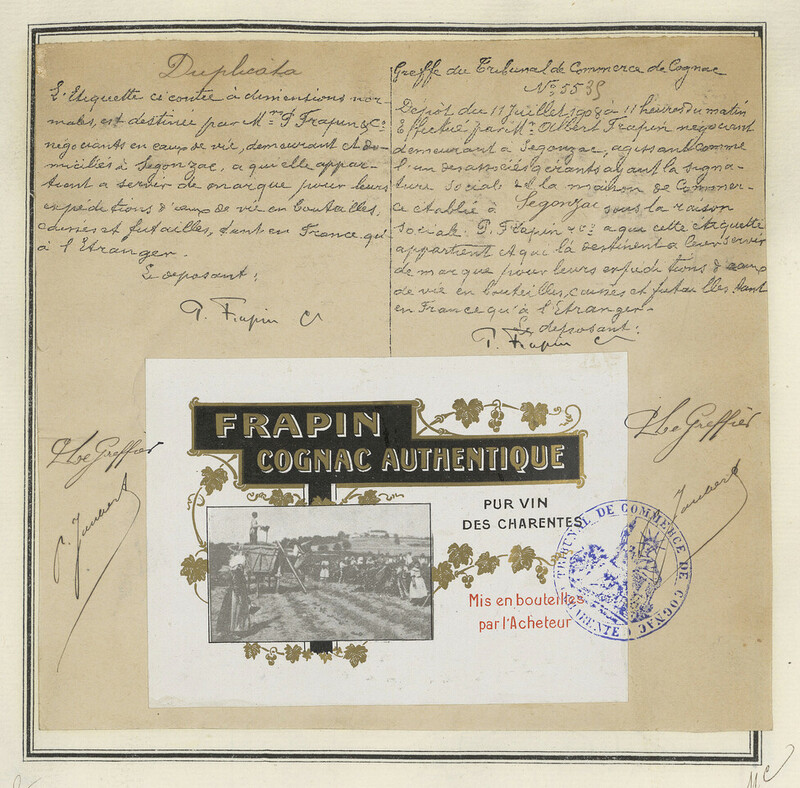 Duplicata
L'Etiquette ci contre à dimensions nor-
males, est destinée par Mrs P. Frapin & Co
négociants en eaux de vie, demeurant et do-
miciliés à Segonzac, a qui elle appar-
tient a servir de marque pour leurs
expéditions d'eaux de vie en bouteilles,
caisses et futailles, tant en France qu'
à l'Etranger.
Le deposant:
P. Frapin Co
Greffe du Tribunal de Commerce de Cognac
No 5535
Dépot du 11 Juillet 1908 à 11 heures du matin
Effectué par Mr Albert Frapin négociant
demeurant à Segonzac, agissant comme
l'un des associés gérants ayant la signa-
ture Sociale de la maison de Commer-
ce établie à Segonzac sous la raison
Sociale P. Frapin & Co a qui cette étiquette
appartient et qui la destinent a leur servir
de marque pour leurs expeditions d'eaux
de vie en bouteilles, caisses et futailles tant
en France qu'à l'Etranger.
Le deposant:
P. Frapin Co
Le Greffier
Le Greffier
FRAPIN
COGNAC AUTHENTIQUE
PUR VIN
DES CHARENTES
Mis en bouteilles
par l'Acheteur
TRIBUNAL DE COMMERCE DE COGNAC